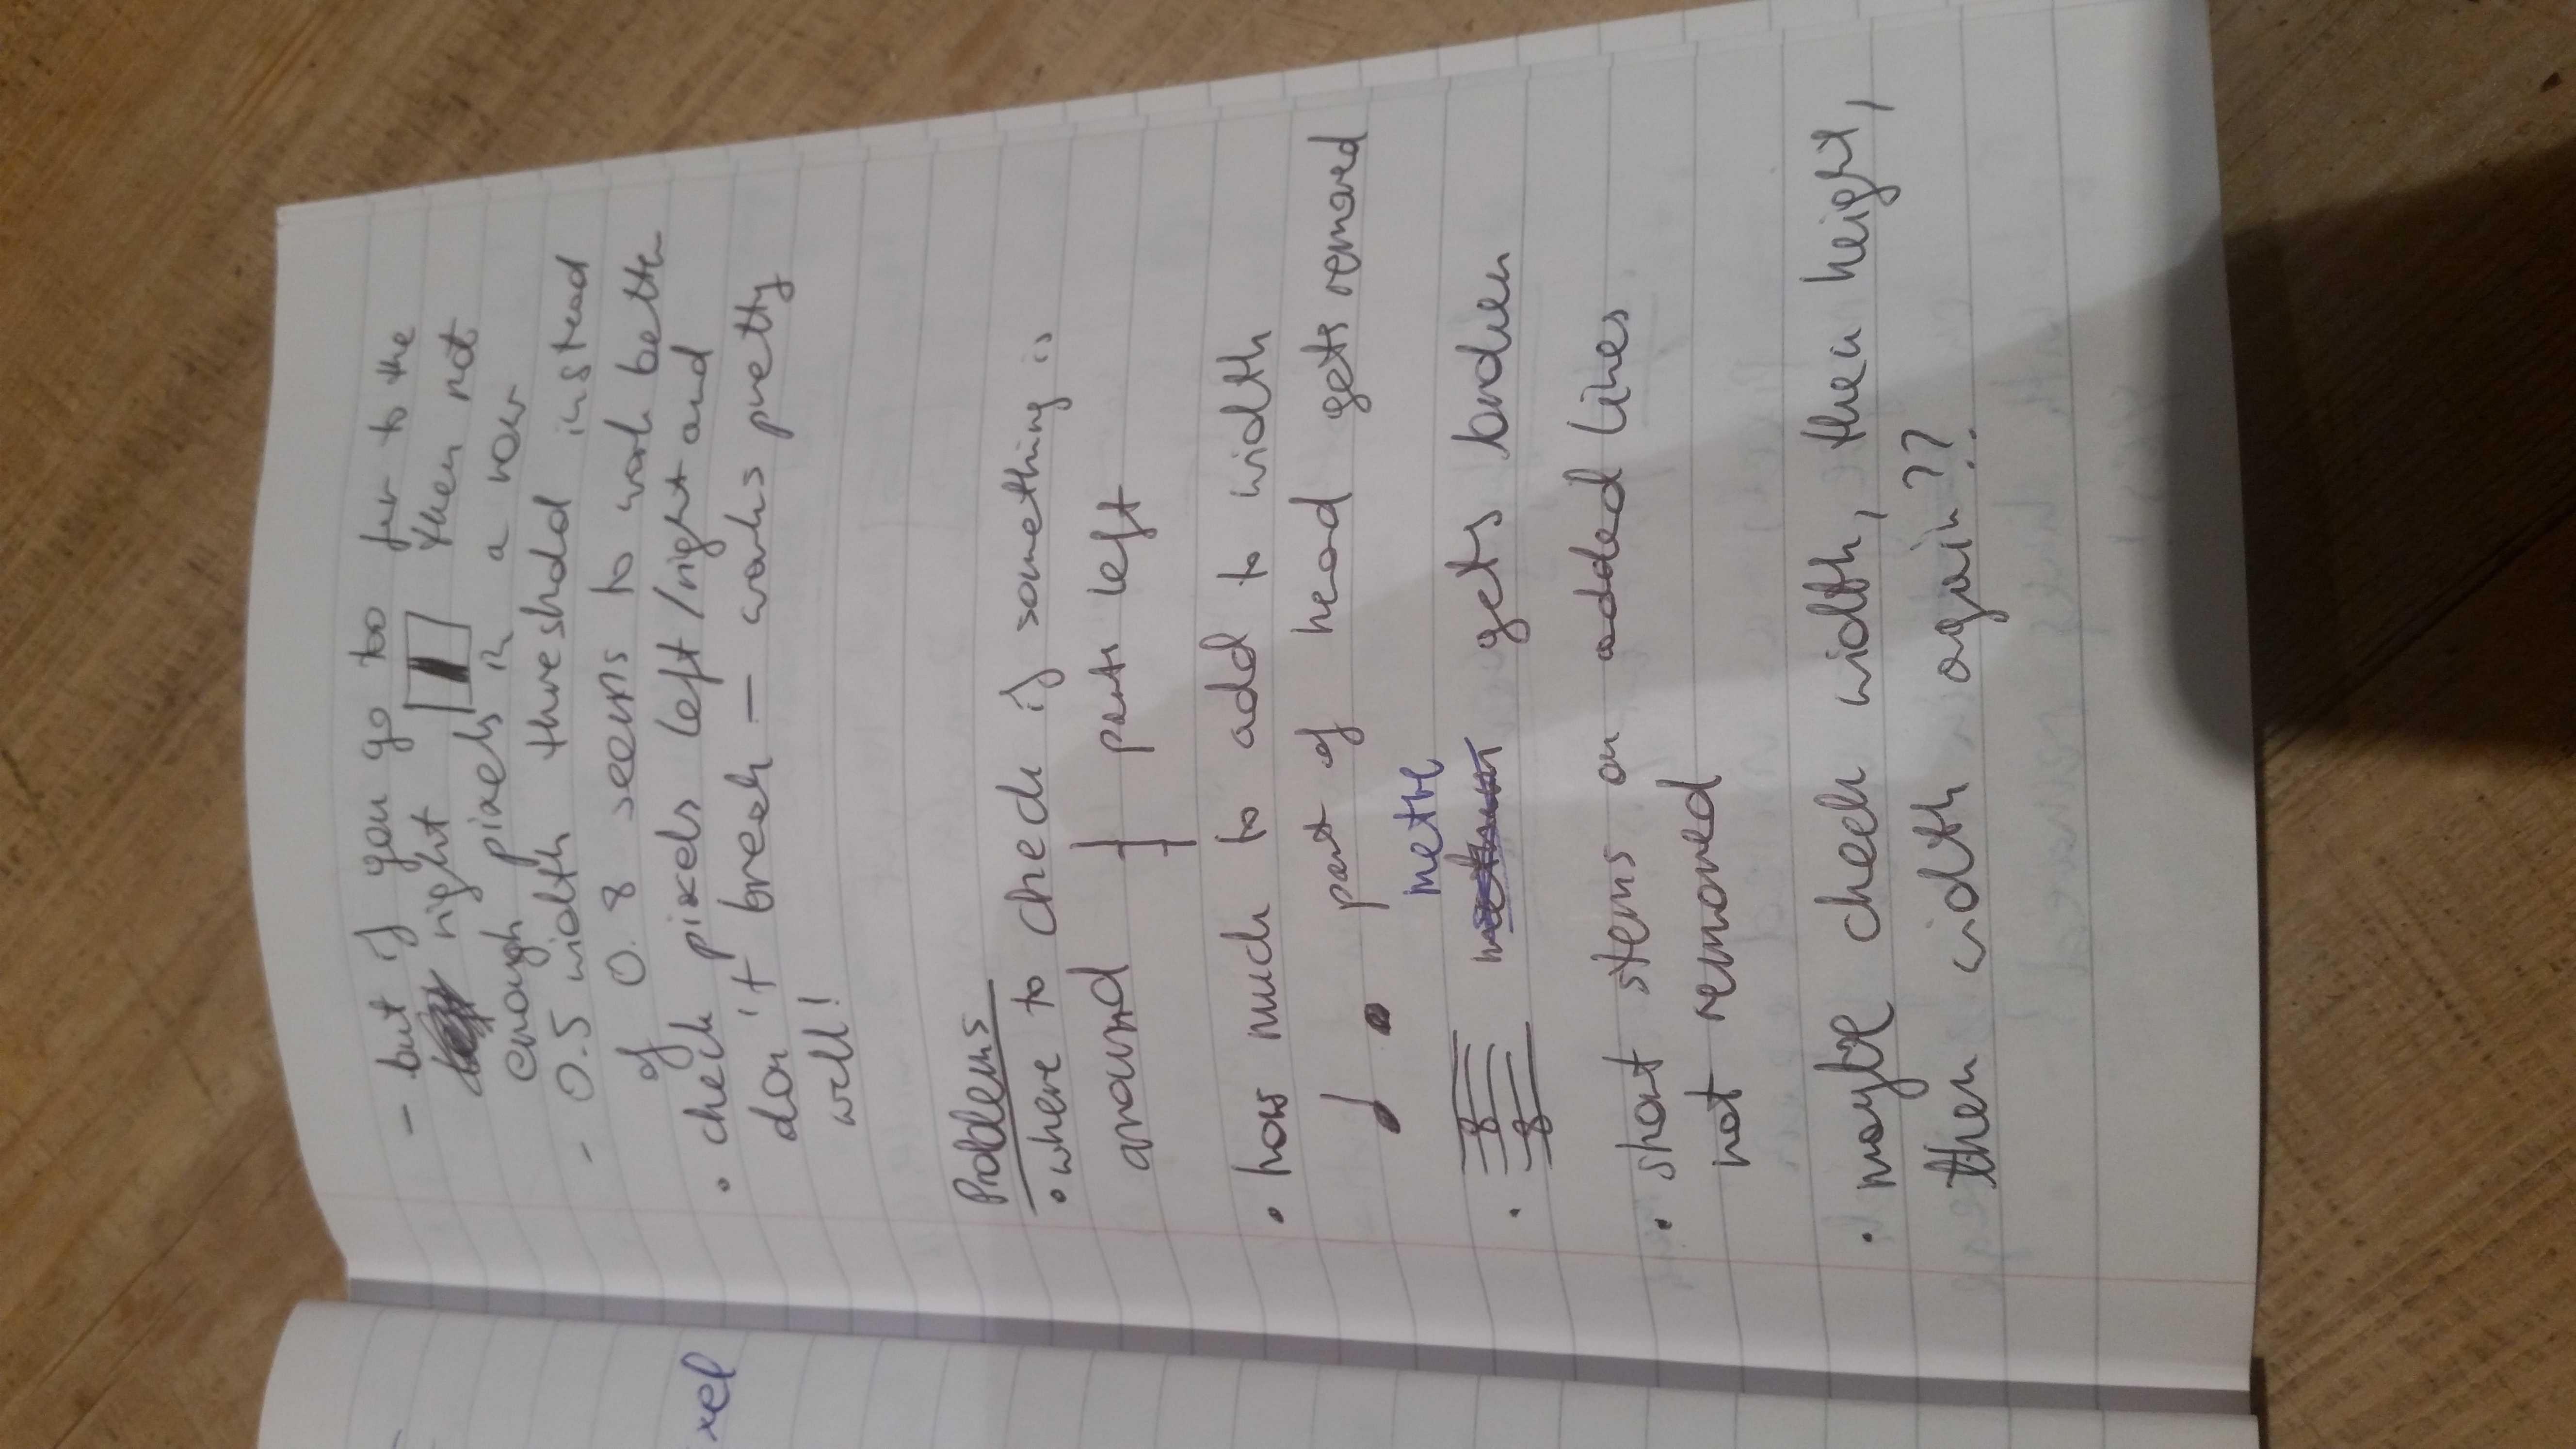 - but if you go too far to the
right then not
enough pixels in a row
- 0.5 width threshold instead
of 0.8 seems to work better
• check pixels left/right and
don't break - works pretty
well!
xel
Problems
• where to check if something is
around parts left
• how much to add to width
part of head gets removed
metre
• 8 gets broken
8
• short stems on added lines
not removed
• maybe check width, then height,
then width again??